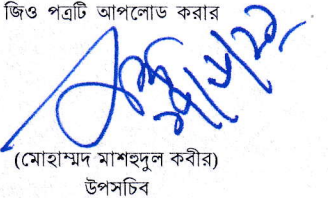 জিও পত্রটি আপলোড করার
(মোহাম্মদ মাশহুদুল কবীর)
উপসচিব